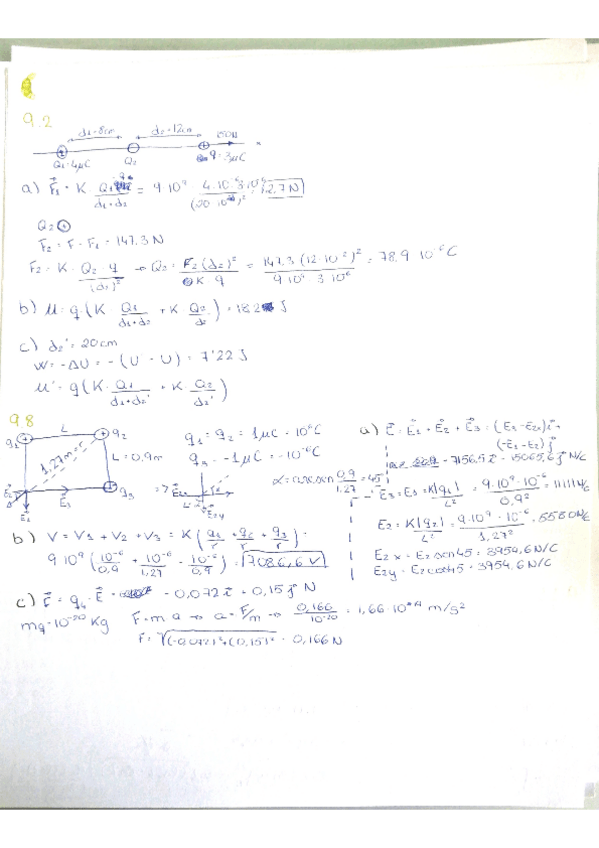 9.2
d₁=8cm d₂=12cm 150N x
Q₁=4μC Q₂ q=3μC
a) F₁ = K · Q₁·q / d₁+d₂ = 9·10⁹ · 4·10⁻⁶·3·10⁻⁶ / (20·10⁻²)² = 2.7N
Q₂ ⊕
F₂ = F - F₁ = 147.3 N
F₂ = K · Q₂ · q / (d₂)² → Q₂ = F₂ (d₂)² / K q = 147.3 (12·10⁻²)² / 9·10⁹ · 3·10⁻⁶ = 78.9 · 10⁻⁶ C
b) U = q · (K Q₁ / d₁+d₂ + K Q₂ / d₂) = 18.2 J
c) d₂' = 20cm
W = -ΔU = -(U' - U) = 7'22 J
U' = q (K · Q₁ / d₁+d₂' + K · Q₂ / d₂')
9.8
L q₁ q₂ 1,27m=r L=0,9m q₃ E₃ E₁
q₁ = q₂ = 1μC = 10⁻⁶C
q₃ = -1μC = -10⁻⁶C
α = arcsen 0,9 / 1,27 = 45°
a) E = E₁ + E₂ + E₃ = (E₃ - E₂ₓ) i +
(-E₁ - E₂) j
7156,5 i - 15065,6 j N/C
E₁ = E₃ = K|q₁| / L² = 9·10⁹·10⁻⁶ / 0,9² = 11111 N/C
E₂ = K|q₂| / r² = 9·10⁹·10⁻⁶ / 1,27² = 5580 N/C
E₂x = E₂ sen45 = 3954,6 N/C
E₂y = E₂ cos45 = 3954,6 N/C
b) V = V₁ + V₂ + V₃ = K (q₁ / r + q₂ / r + q₃ / r) =
9·10⁹ (10⁻⁶ / 0,9 + 10⁻⁶ / 1,27 - 10⁻⁶ / 0,9) = 7086,6 V
c) F = q₄ · E = -0,072 i + 0,15 j N
mq=10⁻²⁰ Kg F=m a → a = F/m → 0,166 / 10⁻²⁰ = 1,66·10¹⁹ m/s²
F = √(-0,072)²+(0,15)² = 0,166 N